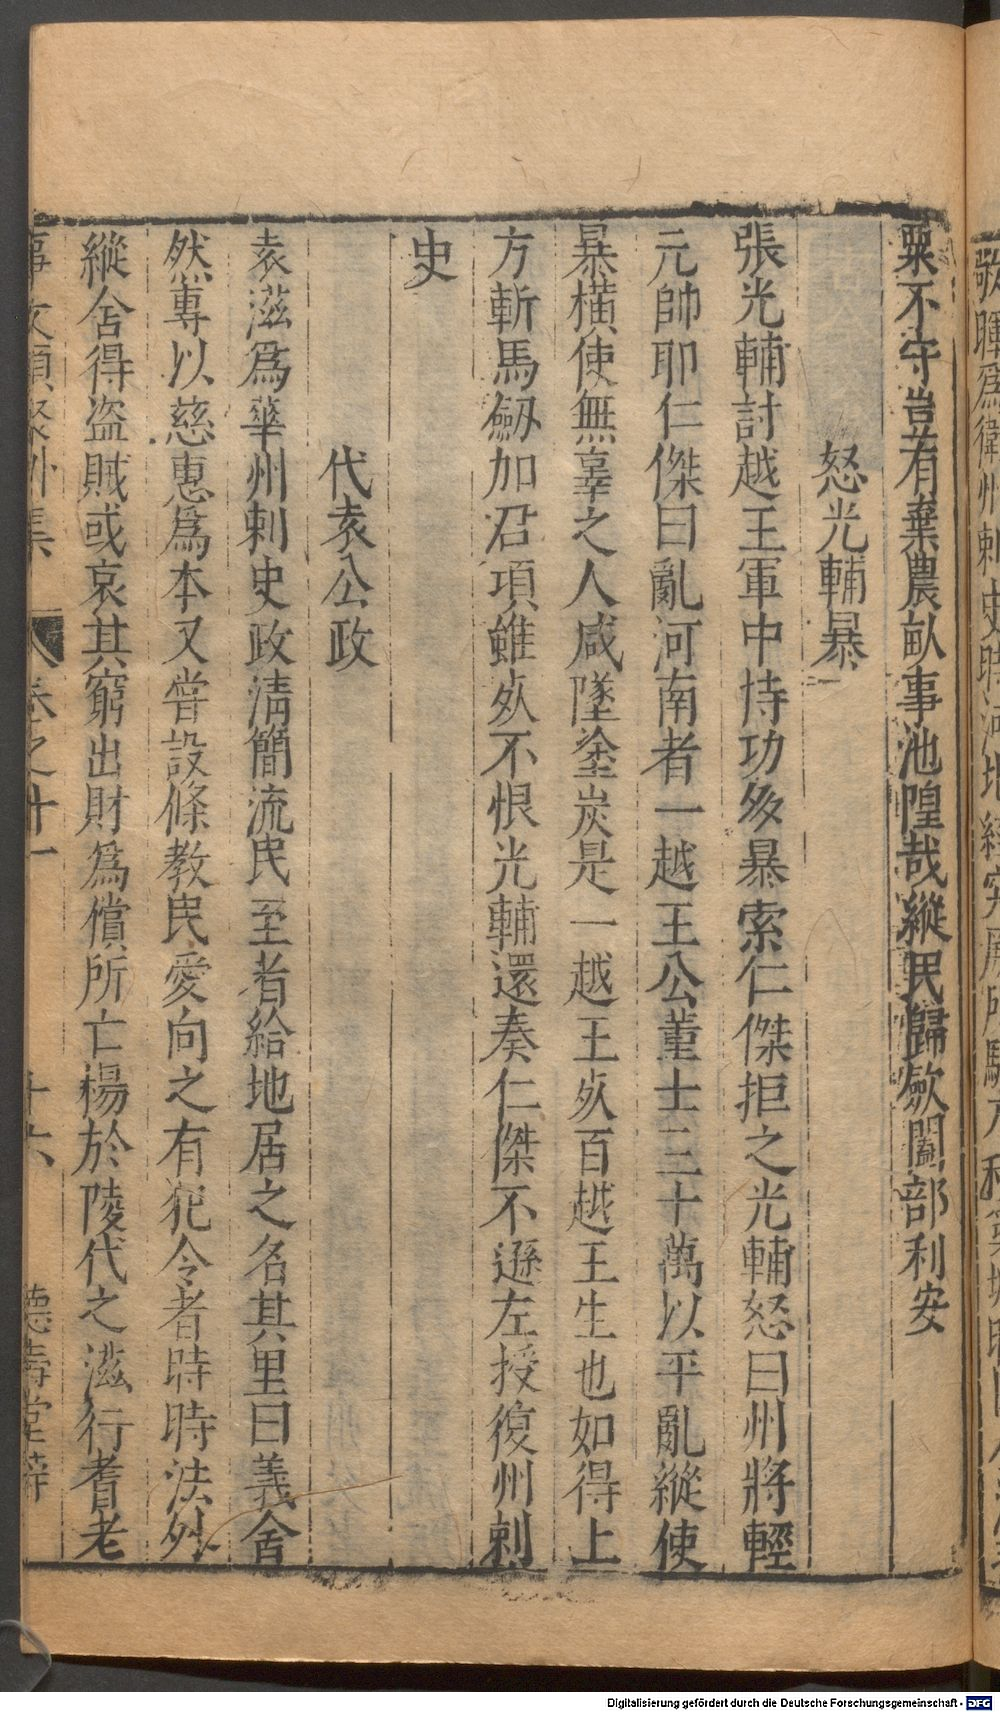 粟不守豈有棄農畝事池隍哉縱民歸歛闔部利安
怒光輔暴
張光輔討越王軍中恃功多暴索仁傑拒之光輔怒曰州將輕
元帥耶仁傑曰亂河南者一越王公董士三十萬以平亂縱使
暴橫使無辜之人咸墜塗炭是一越王死百越王生也如得上
方斬馬劔加君項雖死不恨光輔還奏仁傑不遜左授復州刺
史
代袁公政
袁滋爲華州刺史政淸簡流民至者給地居之名其里曰義舍
然專以慈惠爲本又嘗設條敎民愛向之有犯令者時時法外
縱舍得盜賊或哀其窮出財爲償所亡楊於陵代之滋行耆老
事文類聚外集 卷之十一 十六 德壽堂梓
敬暉爲衛州刺史時河北經突厥所騷方秋
Digitalisierung gefördert durch die Deutsche Forschungsgemeinschaft - DFG